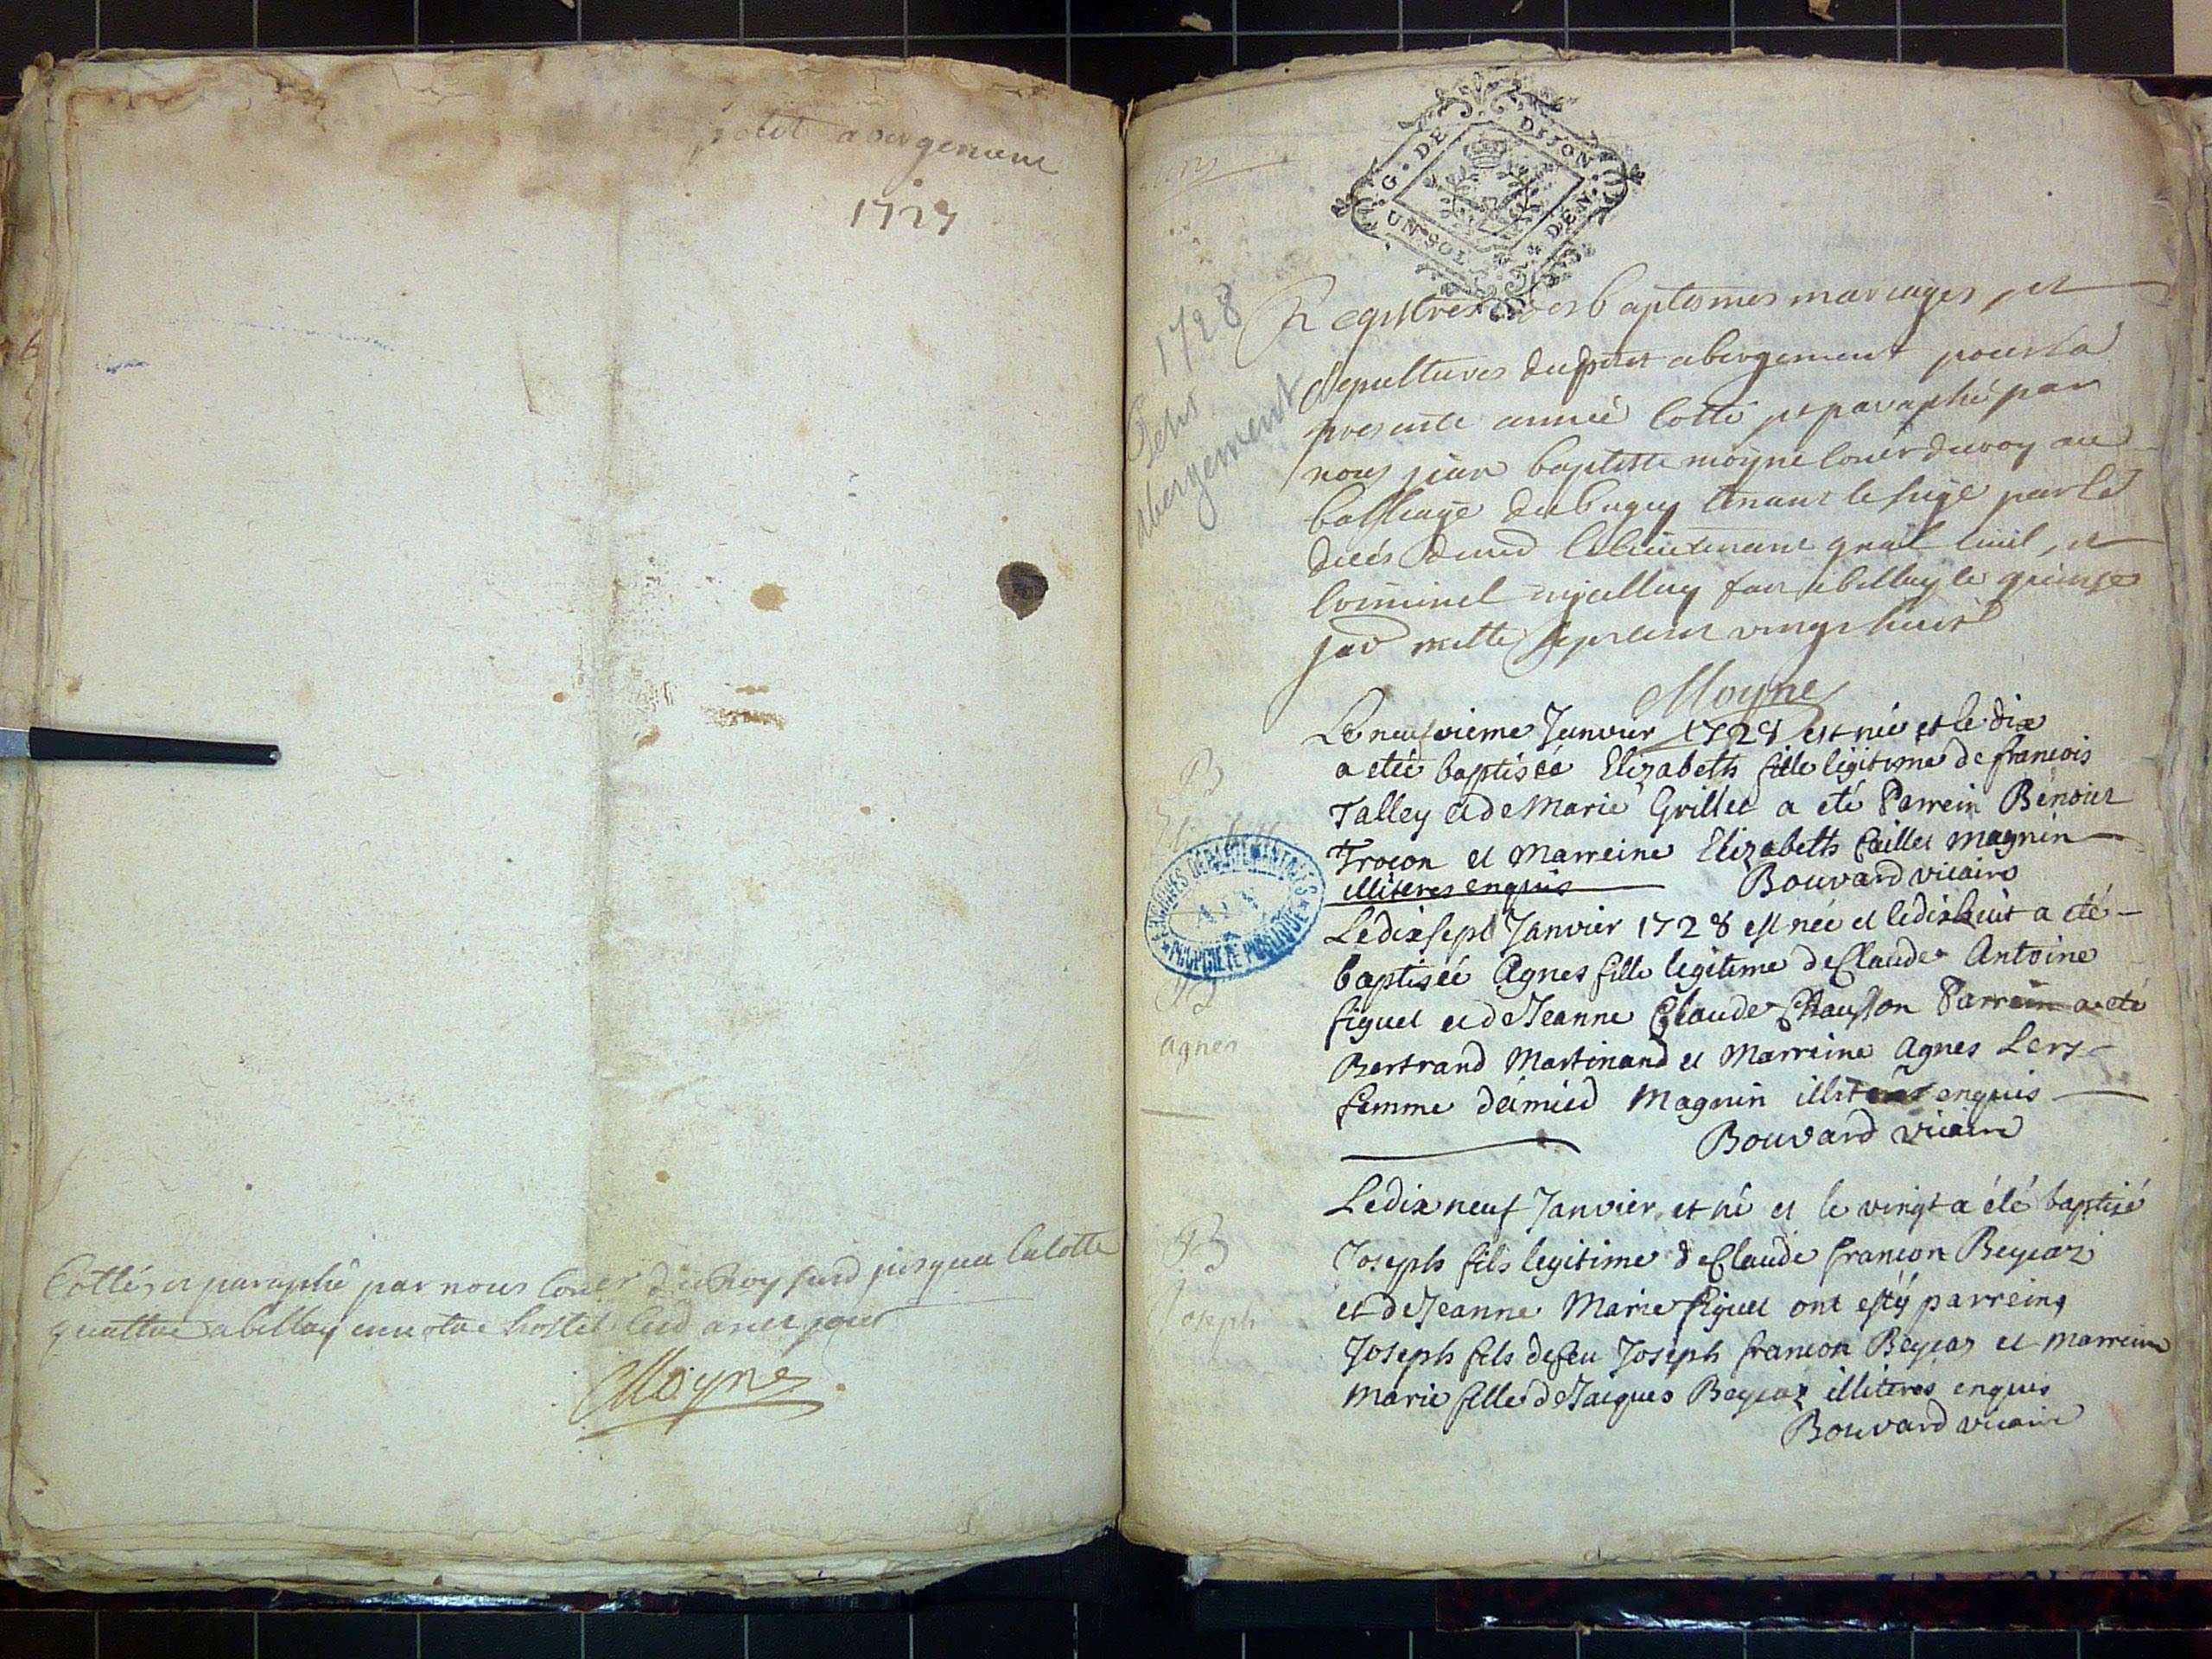 petit abergement
1727
Cottés et paraphé par nous Coner du Roy susd jusqua la Cotte
quattre a bellay en notre hostel lesd an et jour
Moyne
un
G. DE DIJON
UN SOL
DEN.
1728
Petit
abergement
Registres des baptesmes mariages, et
sepultures du petit abergement pour la
presente année Cotté et paraphé par
nous jean baptiste moyne Coner du roy au
balliage du bugey tenant le siege par le
decés de mr le lieutenant gnal Civil, et
Criminel fait a bellay le quinze
jav mille sept cent vingt huit
Moyne
Le neufvieme Janvier 1728 est née et le dix
a eteé baptiséé Elizabeth fille legitime de francois
Talley et de Marie Grillet a eté Parrein Benoit
Trocon et Marreine Elizabeth Caillet magnin
illiteres enquis Bouvard vicaire
Le dix sept Janvier 1728 est née et le dixhuit a eté
baptiséé Agnes fille legitime de Claude Antoine
figuet et de Jeanne Claude Chausson Parrein a eté
Bertrand Martinand et Marreine Agnes Lery
femme deimied Magnin illiteres enquis
Bouvard vicaire
Le dix neuf Janvier et né et le vingt a été baptisé
Joseph fils legitime de Claude francon Beycaz
et de Jeanne Marie figuet ont esty parreins
Joseph fils de feu Joseph francon Beycaz et marreine
Marie fille de Jacques Beycaz illiteres enquis
Bouvard vicaire
B
Elizabeth
ARCHIVES DÉPARTEMENTALES
AIN
PROPRIÉTÉ PUBLIQUE
B
agnes
B
Joseph